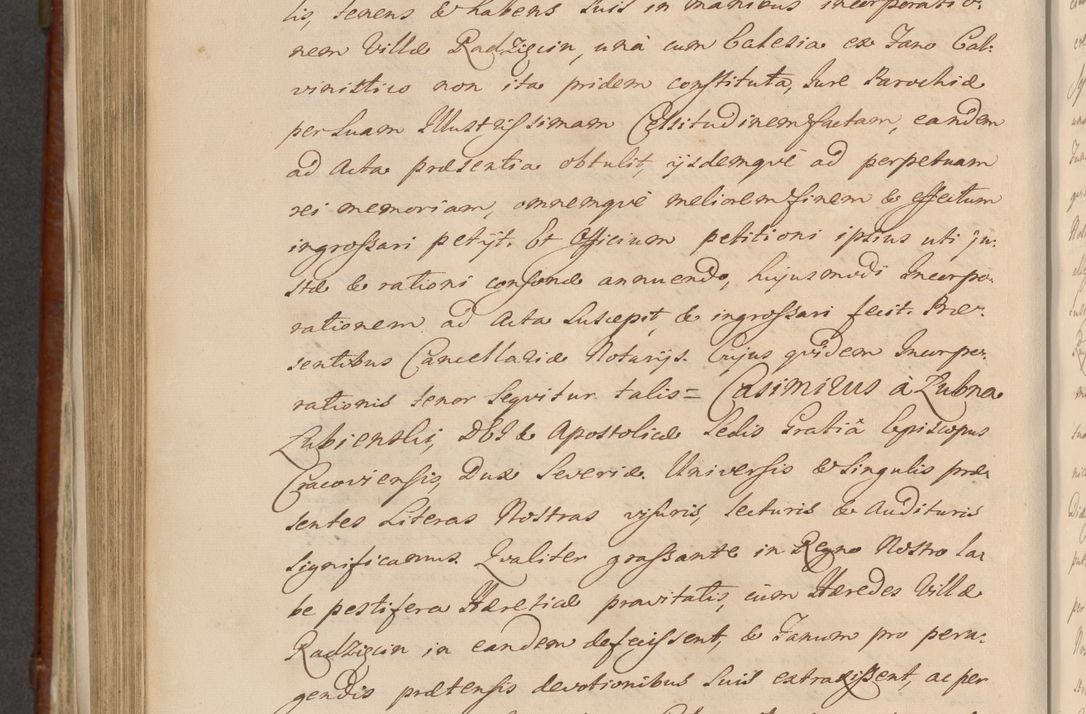 lis, tenens & habens suis in manibus incorporatio-
nem Villæ Radzigcin, unà cum Ecclesia ex Fano Cal-
vinistico non ita pridem constituta, Jure Parochiæ
per Suam Illustrissimam Celsitudinem factam, eandem
ad Acta præsentia obtulit, ijsdemqve ad perpetuam
rei memoriam, omnemqve meliorem finem & effectum
ingrossari petijt. Et Officium petitioni ipsius uti ju-
stæ & rationi consonæ annuendo, hujusmodi Incorpo-
rationem ad Acta suscepit, & ingrossari fecit. Præ-
sentibus Cancellariæ Notarijs. Cujus qvidem Incorpo-
rationis tenor seqvitur talis = Casimirus à Lubna
Lubienski, DEI & Apostolicæ Sedis Gratiâ Episcopus
Cracoviensis, Dux Severiæ. Universis & Singulis præ-
sentes Literas Nostras visuris, lecturis & Audituris
significamus. Qvaliter grassante in Regno Nostro la-
be pestifera Hæreticæ pravitatis, cùm Hæredes Villæ
Radzigcin in eandem defecissent, & Fanum pro pera-
gendis prætensis devotionibus suis extraxissent, ac per